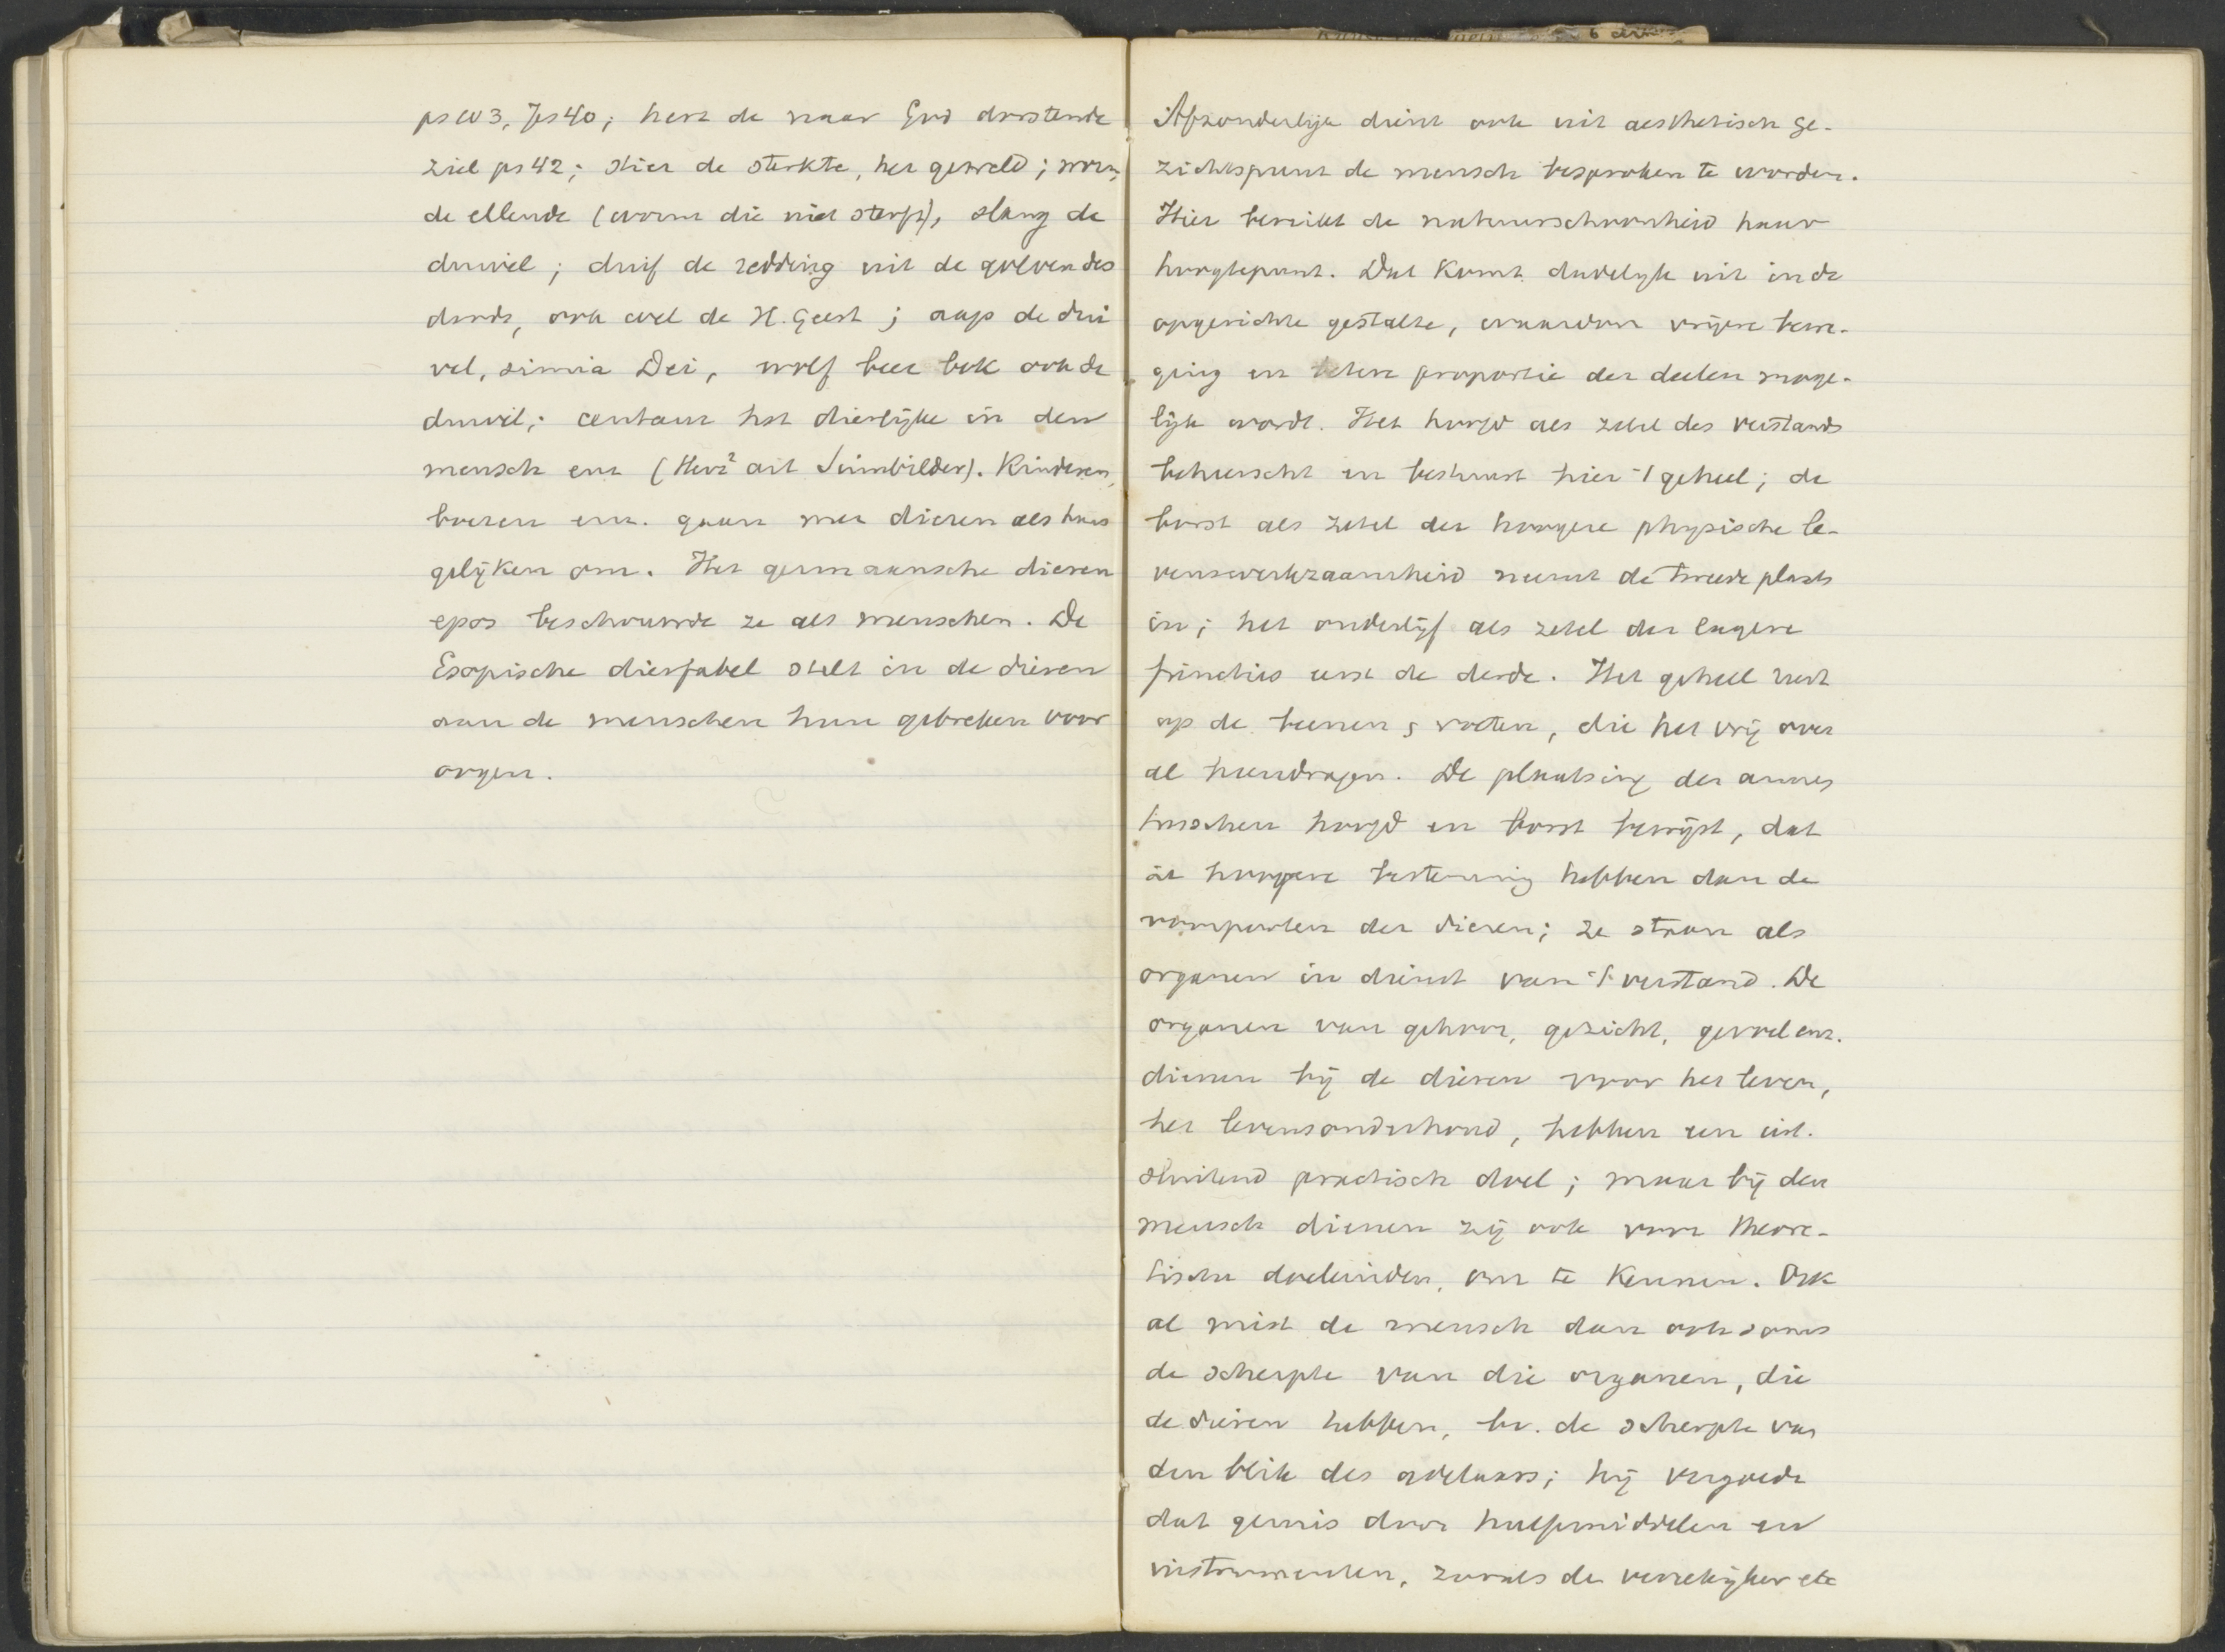 ps 103, Jes 40; hert de naar God dorstende
ziel ps 42; stier de sterkte, het geweld; worm
de ellende (worm die niet sterft), slang de
duivel; duif de redding uit de golven des
doods, ook wel de H. Geest; aap de dui
vel, simia Dei, wolf beer bok ook de
duivel; centaur het dierlijke in den
mensch enz (Herz² art Sinnbilder). Kinderen,
boeren enz. gaan met dieren als huns
gelijken om. Het germaansche dieren
epos beschouwde ze als menschen. De
Esopische dierfabel stelt in de dieren
aan de menschen hun gebreken voor
oogen.
Afzonderlijk dient ook uit aesthetisch ge-
zichtspunt de mensch besproken te worden.
Hier bereikt de natuurschoonheid haar
hoogtepunt. Dat komt duidelijk uit in de
opgerichte gestalte, waardoor vrijere bewe-
ging en betere proportie der deelen moge-
lijk wordt. Het hoofd als zetel des verstands
beheerscht en bestuurt hier 't geheel; de
borst als zetel der hoogere physische le-
venswerkzaamheid neemt de tweede plaats
in; het onderlijf als zetel der lagere
functies eerst de derde. Het geheel rust
op de beenen & voeten, die het vrij over
al heendragen. De plaatsing der armen
tusschen hoofd en borst bewijst, dat
ze hoogere bestemming hebben dan de
voorpooten der dieren; ze staan als
organen in dienst van 't verstand. De
organen van gehoor, gezicht, gevoel enz.
dienen bij de dieren voor het leven,
het levensonderhoud, hebben een uit-
sluitend practisch doel; maar bij den
mensch dienen zij ook voor theore-
tische doeleinden, om te kennen. Ook
al mist de mensch dan ook soms
de scherpte van die organen, die
de dieren hebben, bv. de scherpte van
den blik des adelaars; hij vergoedt
dat gemis door hulpmiddelen en
instrumenten, zooals de verrekijker etc